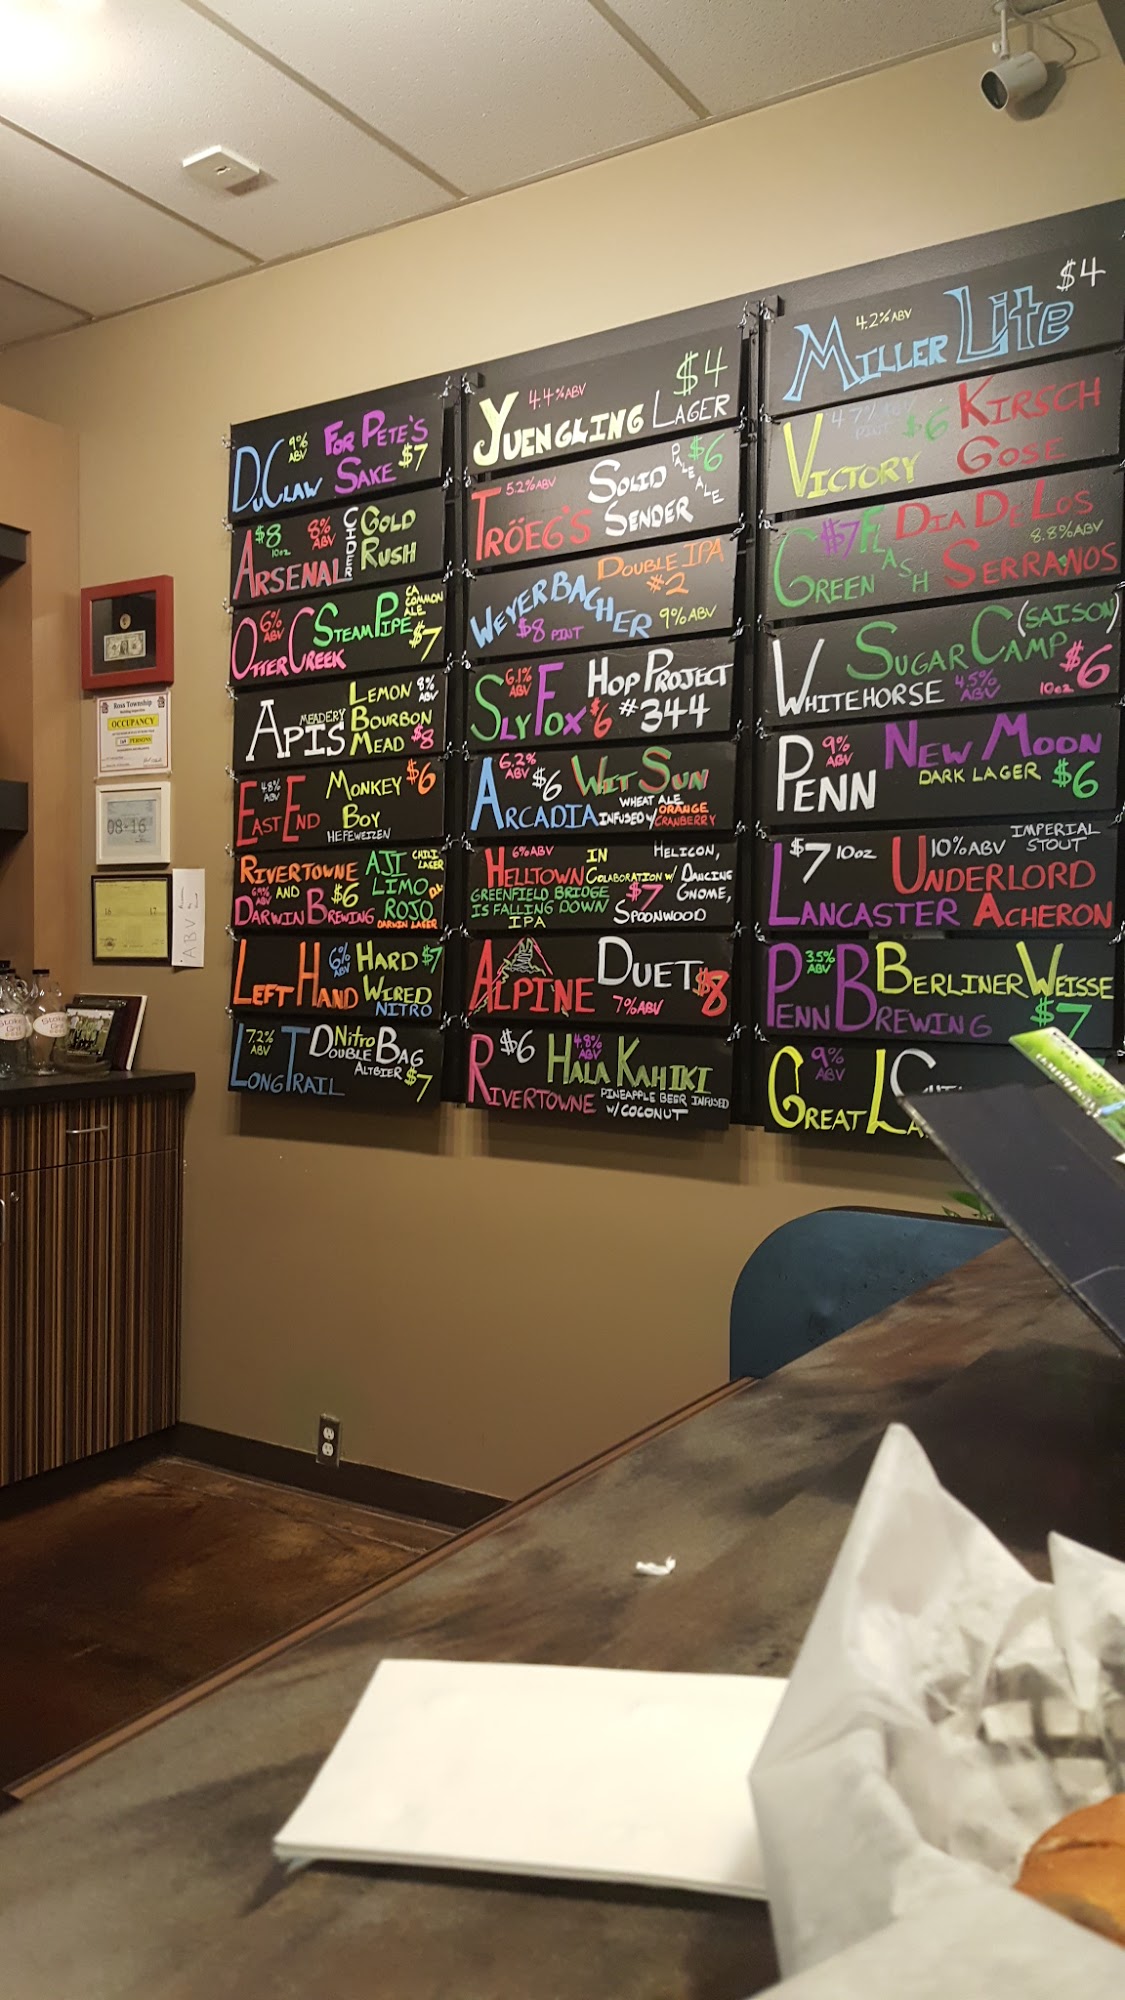 DuClaw 9% ABV For Pete's
Sake $7
Arsenal $8 10oz 8% ABV Cider Gold
Rush
Otter Creek 6% ABV Steam Pipe CA Common Ale $7
Apis Meadery Lemon 8% ABV
Bourbon
Mead $8
East End 4.8% ABV Monkey $6
Boy
Hefeweizen
Rivertowne Aji Chili Lager
and $6 Limo
Darwin Brewing Rojo
Darwin Lager
Left Hand 6% ABV Hard $7
Wired
Nitro
Long Trail 7.2% ABV Nitro
Double Bag
Altbier $7
Yuengling 4.4% ABV Lager $4
Tröeg's 5.2% ABV Solid Pale Ale $6
Sender
Weyerbacher Double IPA
#2
$8 Pint 9% ABV
Sly Fox 6.1% ABV $6 Hop Project
#344
Arcadia 6.2% ABV $6 Wit Sun
Wheat Ale
Infused w/ Orange
Cranberry
Helltown 6% ABV in Helicon,
Colaboration w/ Dancing
Gnome,
Spoonwood
Greenfield Bridge $7
is Falling Down
IPA
Alpine Duet $8
7% ABV
Rivertowne $6 4.8% ABV Hala Kahiki
Pineapple Beer Infused
w/ Coconut
Miller Lite 4.2% ABV $4
Victory Pint $6 Kirsch
Gose
Green Flash $7 Dia De Los
8.8% ABV
Serranos
Whitehorse (Saison)
Sugar Camp
4.5% ABV 10oz $6
Penn 9% ABV New Moon
Dark Lager $6
Lancaster $7 10oz 10% ABV Imperial
Stout
Underlord
Acheron
Penn Brewing 3.5% ABV Berliner Weisse
$7
Great 9% ABV
Ross Township
OCCUPANCY
08-16
16 17
ABV